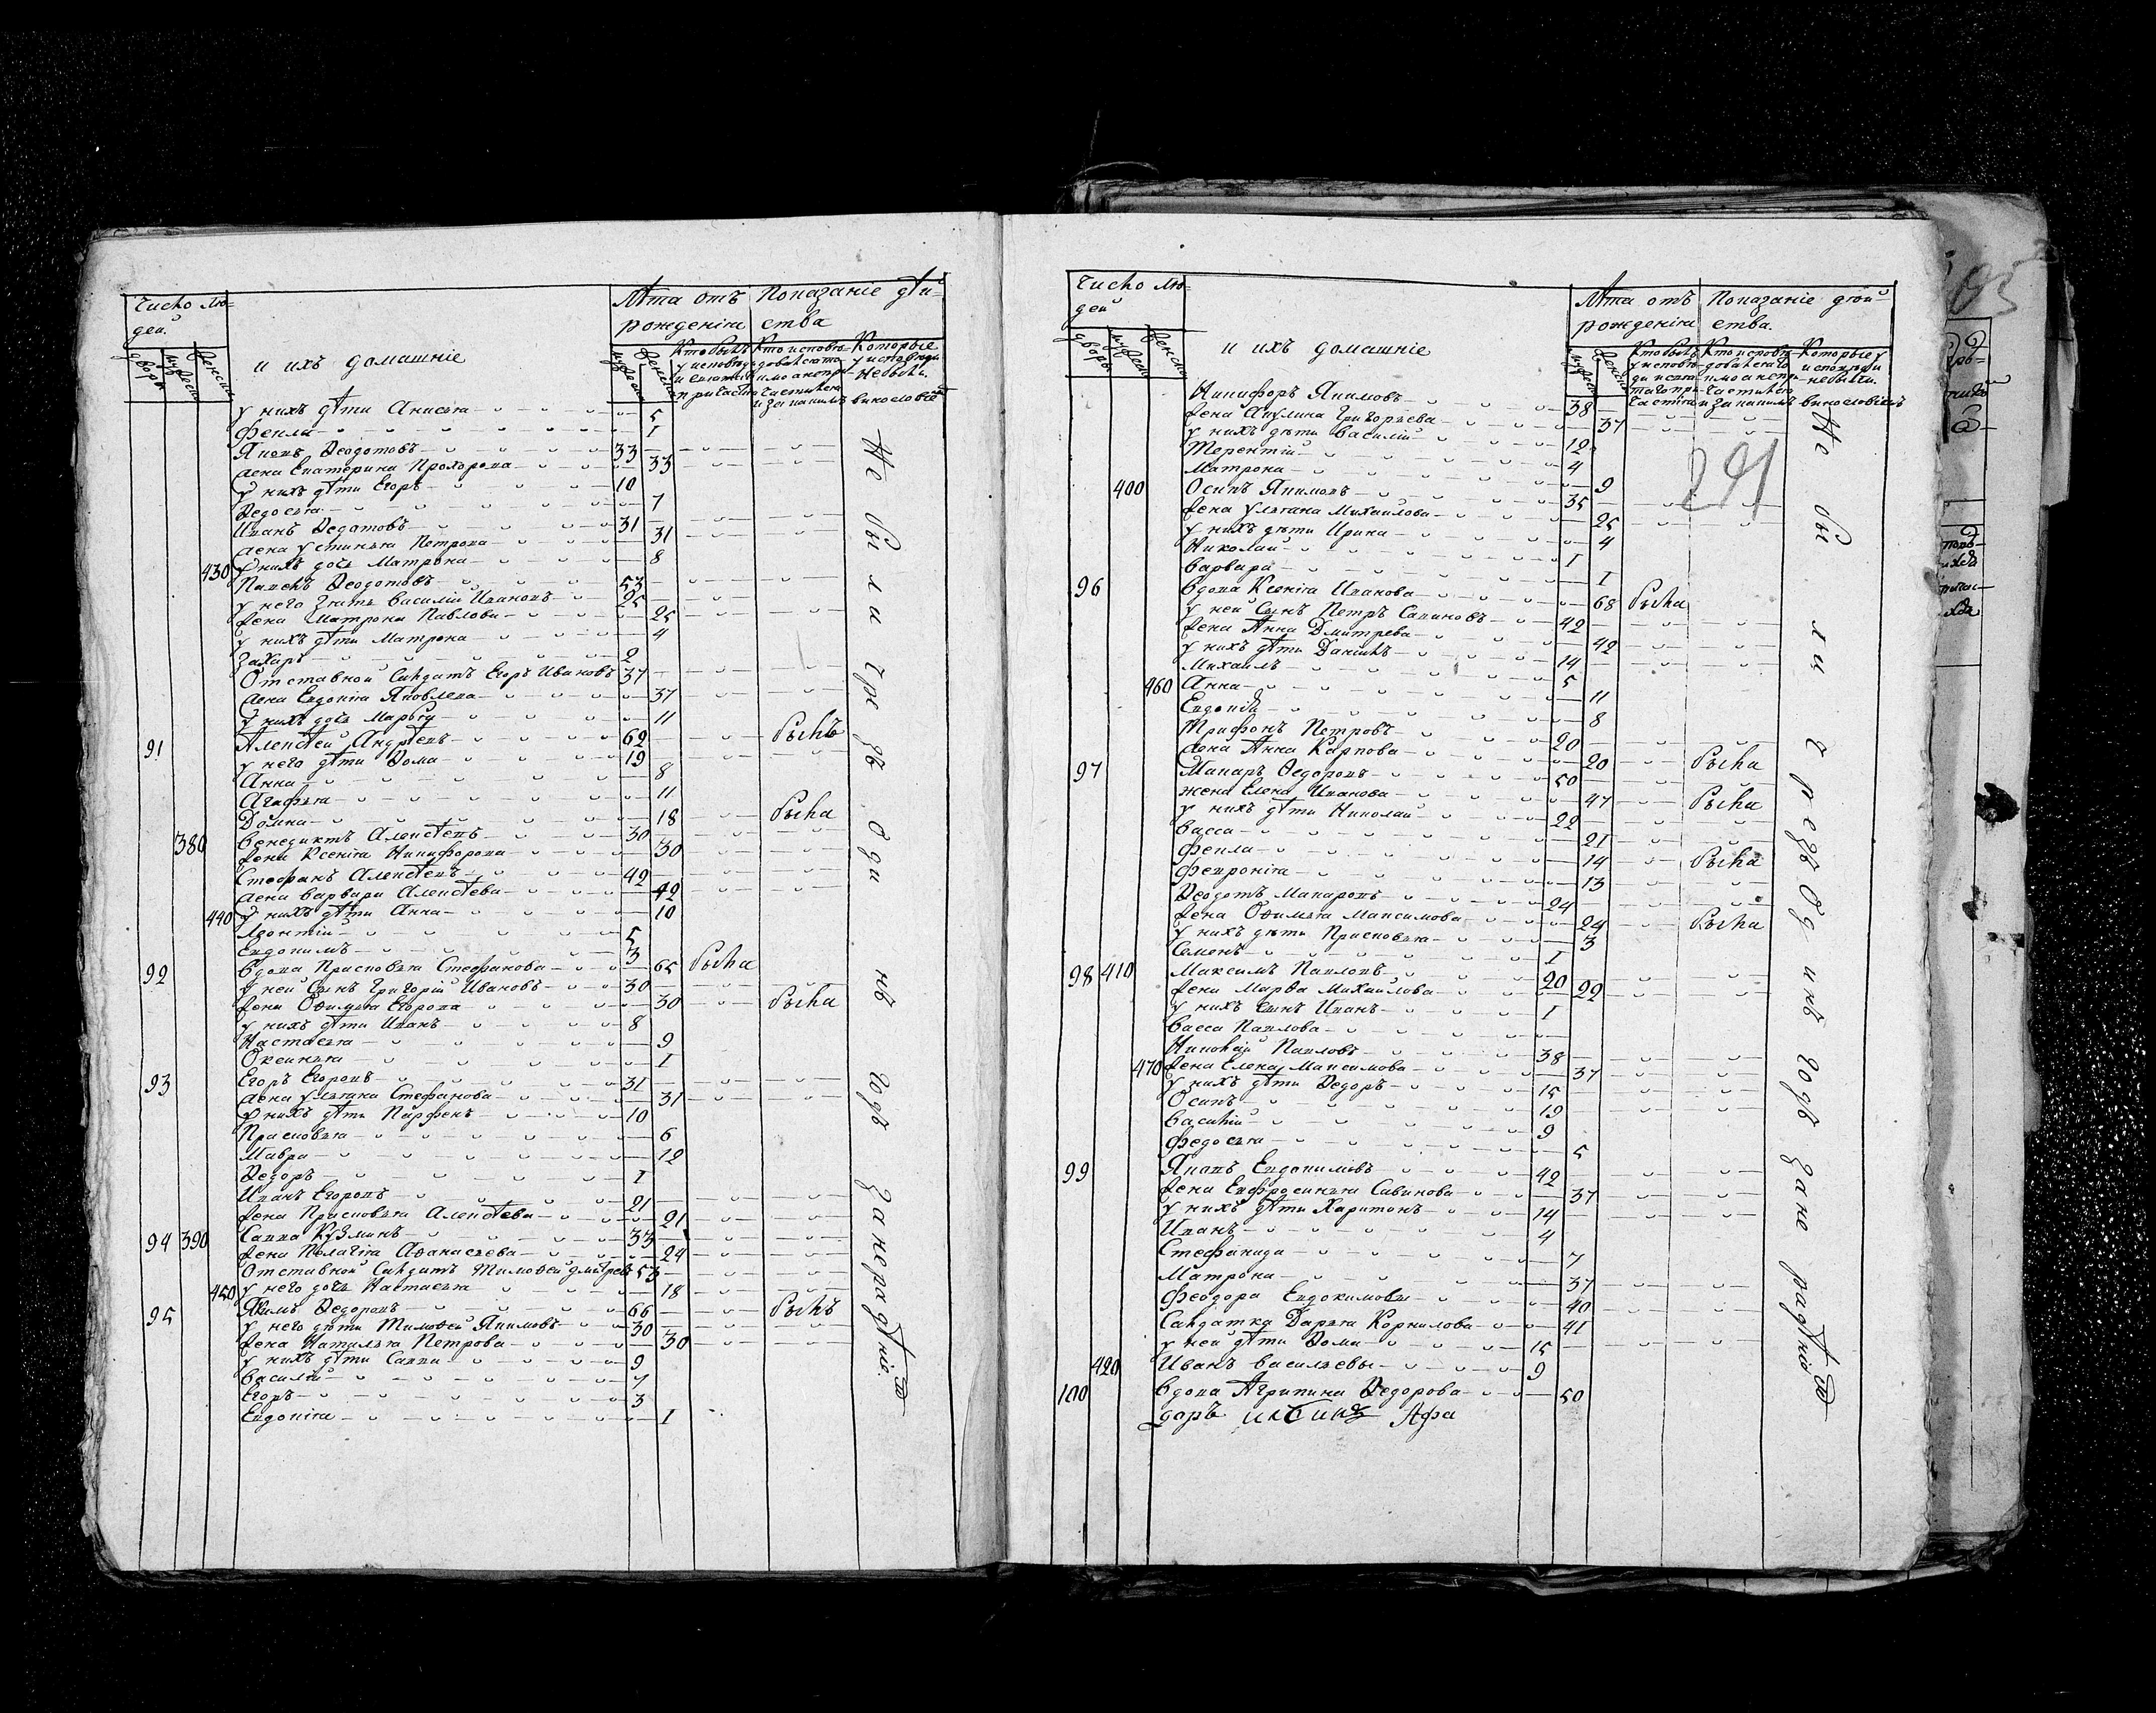 Число лю-
дей.
дворы
муж. пола
женска
и ихъ домашніе
Лѣта отъ рожденія
Показаніе дѣй-
ства
у нихъ дѣти Анисья 5
Фекла 1
Яковъ Ѳедотовъ 33
жена Екатерина Прохорова 33
у нихъ дѣти Егоръ 10
Ѳедосья 7
Иванъ Ѳедотовъ 31
жена Устинья Петрова 31
430 у нихъ дочь Матрона 8
Павелъ Ѳедотовъ 53
у него зять Василій Ивановъ 25
жена Матрона Павлова 25
у нихъ дѣти Матрона 4
Захаръ 2
Отставной Салдатъ Егоръ Ивановъ 37
жена Евдокія Яковлева 37
у нихъ дочь Марѳа 11
91 Алексѣй Андрѣевъ 62 Былъ
у него дѣти Ѳома 19
Анна 8
Агафья 11
Домна 18 Была
380 Венедиктъ Алексѣевъ 30
жена Ксенія Никифорова 30
Стефанъ Алексѣевъ 42
жена Варвара Алексѣева 42
440 у нихъ дѣти Анна 10
Леонтій 5
Евдокимъ 3
92 Вдова Прасковья Стефанова 65 Была
у ней Сынъ Григорій Ивановъ 30
жена Офимья Егорова 30 Была
у нихъ дѣти Иванъ 8
Настасья 9
Оксинья 1
93 Егоръ Егоровъ 31
жена Ульяна Стефанова 31
у нихъ дѣти Парфенъ 10
Прасковья 6
Мавра 12
Ѳедоръ 1
Иванъ Егоровъ 21
жена Прасковья Алексѣева 21
94 390 Савва Кузминъ 33
жена Пелагія Аѳанасьева 24
Отставной Салдатъ Тимоѳей Дмитревъ 53
450 у него дочь Настасья 18
95 Якимъ Ѳедоровъ 66 Былъ
у него дѣти Тимоѳей Якимовъ 30
жена Наталья Петрова 30
у нихъ дѣти Савва 9
Василій 7
Егоръ 3
Евдокія 1
Не были чрезъ одинъ годъ за нерадѣніе.
Число лю-
дей
дворы
муж. пола
женска
и ихъ домашніе
Лѣта отъ рожденія
Показаніе дѣй-
ства.
291
Никифоръ Якимовъ 38
жена Акулина Григорьева 37
у нихъ дѣти Василій 12
Терентій 4
Матрона 9
400 Осипъ Якимовъ 35
жена Ульяна Михайлова 25
у нихъ дѣти Ирина 4
Николай 1
Варвара 1
96 Вдова Ксенія Иванова 68 Была
у ней Сынъ Петръ Савиновъ 42
жена Анна Дмитрева 42
у нихъ дѣти Данилъ 14
Михаилъ 5
460 Анна 11
Евдокія 8
Трифонъ Петровъ 20
жена Анна Карпова 20 Была
97 Макаръ Ѳедоровъ 50
жена Елена Иванова 47 Была
у нихъ дѣти Николай 22
Васса 21
Фекла 14 Была
Февронія 13
Ѳедотъ Макаровъ 24
жена Офимья Максимова 24 Была
у нихъ дѣти Прасковья 3
Семенъ 1
98 410 Максимъ Павловъ 20
жена Марѳа Михайлова 22
у нихъ сынъ Иванъ 1
Васса Павлова
Николай Павловъ 38
470 жена Елена Максимова 37
у нихъ дѣти Ѳедоръ 15
Осипъ 19
Василій 9
Федосья 5
99 Яковъ Евдокимовъ 42
жена Евфросинья Савинова 37
у нихъ дѣти Харитонъ 14
Иванъ 4
Стефанида 7
Матрона 37
Феодора Евдокимова 40
Салдатка Дарья Корнилова 41
у ней дѣти Ѳома 15
420 Иванъ Васильевы 9
100 Вдова Агрипина Ѳедорова 50
Не были чрезъ Одинъ годъ за нерадѣніе